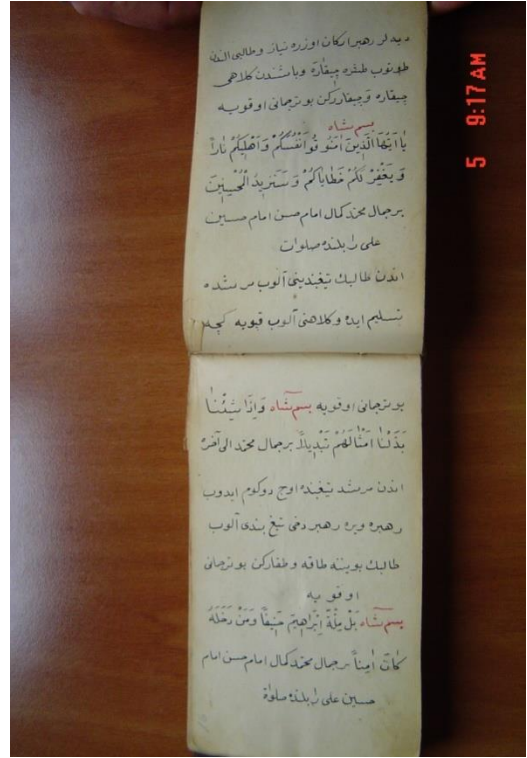 دیه لر رهبر ارکان اوزره نیاز و طالبی الدن
طوتوب طشره چیقاره و باشندن کلاهی
چیقاره و چیقارركن بو ترجمانی اوقویه
بسم شاه
یا ایها الذین امنو قوا انفسکم و اهلیکم نارا
و یغفر لکم خطایاکم و سنزید المحسنین
بر جمال محمد کمال امام حسن امام حسین
علی را بلنده صلوات
اندن طالبك تیغبندینی آلوب مرشده
تسلیم ایده و کلاهنی آلوب قپویه کجه
بو ترجمانی اوقویه بسم شاه وَاِذَا شِئْنَا
بَدَّلْنَا اَمْثَالَهُمْ تَبْدِیلاً بر جمال محمد الی آخره
اندن مرشد تیغبنده اوج دوکوم ایدوب
رهبره ویره رهبر دخی تیغ بندی آلوب
طالبك بویننه طاقه و طقارکن بو ترجمانی
اوقویه
بسم شاه بَلْ مِلَّةَ اِبْرَاهِیمَ حَنِیفًا وَمَنْ دَخَلَهُ
كَانَ اٰمِناً بر جمال محمد کمال امام حسن امام
حسین علی را بلنده صلواة
5 9:17 AM